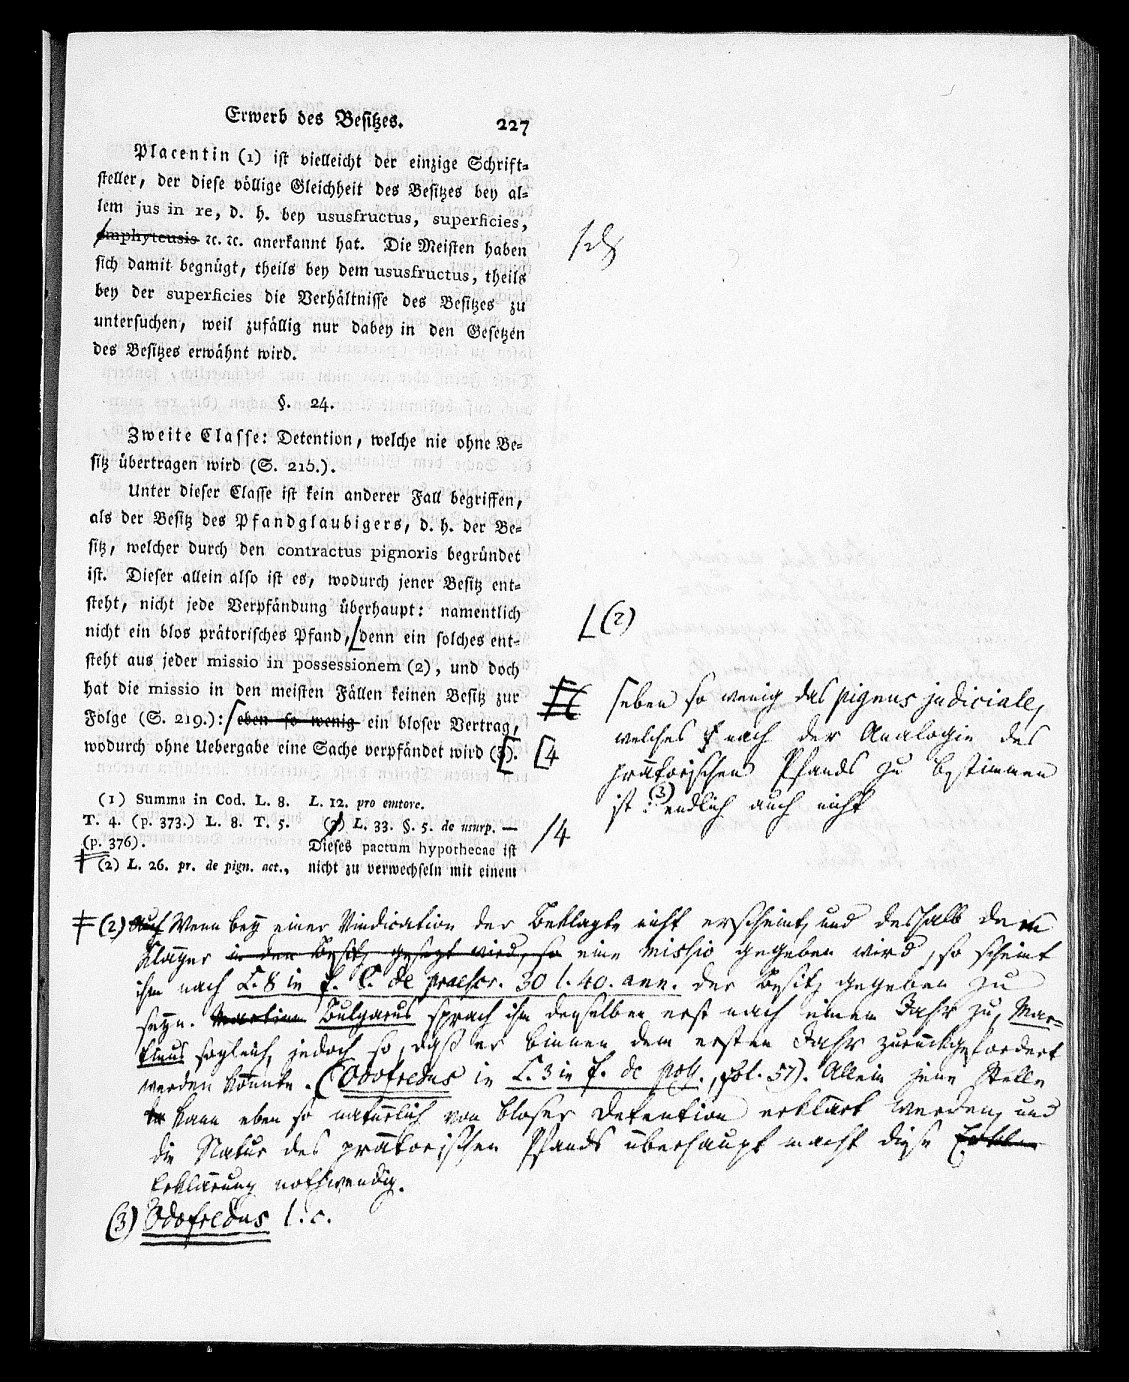 Erwerb des Besitzes. 227
Placentin (1) ist vielleicht der einzige Schrift-
steller, der diese völlige Gleichheit des Besitzes bey al-
lem jus in re, d. h. bey ususfructus, superficies,
emphyteusis ꝛc. ꝛc. anerkannt hat. Die Meisten haben
sich damit begnügt, theils bey dem ususfructus, theils
bey der superficies die Verhältnisse des Besitzes zu
untersuchen, weil zufällig nur dabey in den Gesetzen
des Besitzes erwähnt wird.
§. 24.
Zweite Classe: Detention, welche nie ohne Be-
sitz übertragen wird (S. 215.).
Unter dieser Classe ist kein anderer Fall begriffen,
als der Besitz des Pfandglaubigers, d. h. der Be-
sitz, welcher durch den contractus pignoris begründet
ist. Dieser allein also ist es, wodurch jener Besitz ent-
steht, nicht jede Verpfändung überhaupt: namentlich
nicht ein blos prätorisches Pfand, denn ein solches ent-
steht aus jeder missio in possessionem (2), und doch
hat die missio in den meisten Fällen keinen Besitz zur
Folge (S. 219.): eben so wenig ein bloser Vertrag,
wodurch ohne Uebergabe eine Sache verpfändet wird (3).
(2)
eben so wenig das pignus judiciale,
welches nach der Analogie des
prätorischen Pfands zu bestimmen
ist (3): endlich auch nicht
[4
/4
(1) Summa in Cod. L. 8.
T. 4. (p. 373.) L. 8. T. 5.
(p. 376).
(2) L. 26. pr. de pign. act.,
L. 12. pro emtore.
(3) L. 33. §. 5. de usurp. —
Dieses pactum hypothecae ist
nicht zu verwechseln mit einem
(2) Auch Wenn bey einer Vindication der Beklagte nicht erscheint, und deshalb dem
Kläger in den Besitz gesezt wird, so eine missio gegeben wird, so scheint
ihm nach L. 8 in f. C. de praescr. 30 l. 40. ann. der Besitz gegeben zu
seyn. Martinus Bulgarus sprach ihm denselben erst nach einem Jahr zu, Mar-
tinus sogleich, jedoch so, daß er binnen dem ersten Jahr zurückgefordert
werden könnte. (Odofredus in L. 3 in f. de poss., fol. 57). Allein jene Stelle
kann eben so natürlich von bloser Detention erklärt werden, und
die Natur des prätorischen Pfands überhaupt macht diese
Erklärung nothwendig.
(3) Odofredus l. c.